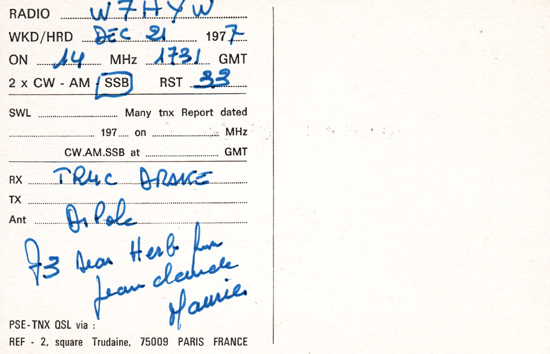 RADIO W7HYW
WKD/HRD DEC 21 1977
ON 14 MHz 1731 GMT
2 x CW - AM - SSB RST 33
SWL Many tnx Report dated
197 on MHz
CW.AM.SSB at GMT
RX TR4C DRAKE
TX
Ant DiPole
73 Dear Herb
Jean Claude
Maurice
PSE-TNX QSL via :
REF - 2, square Trudaine, 75009 PARIS FRANCE